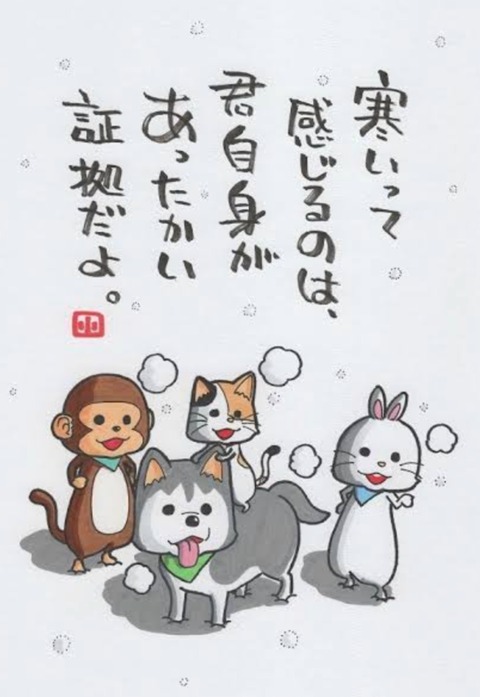 寒いって
感じるのは、
君自身が
あったかい
証拠だよ。
小